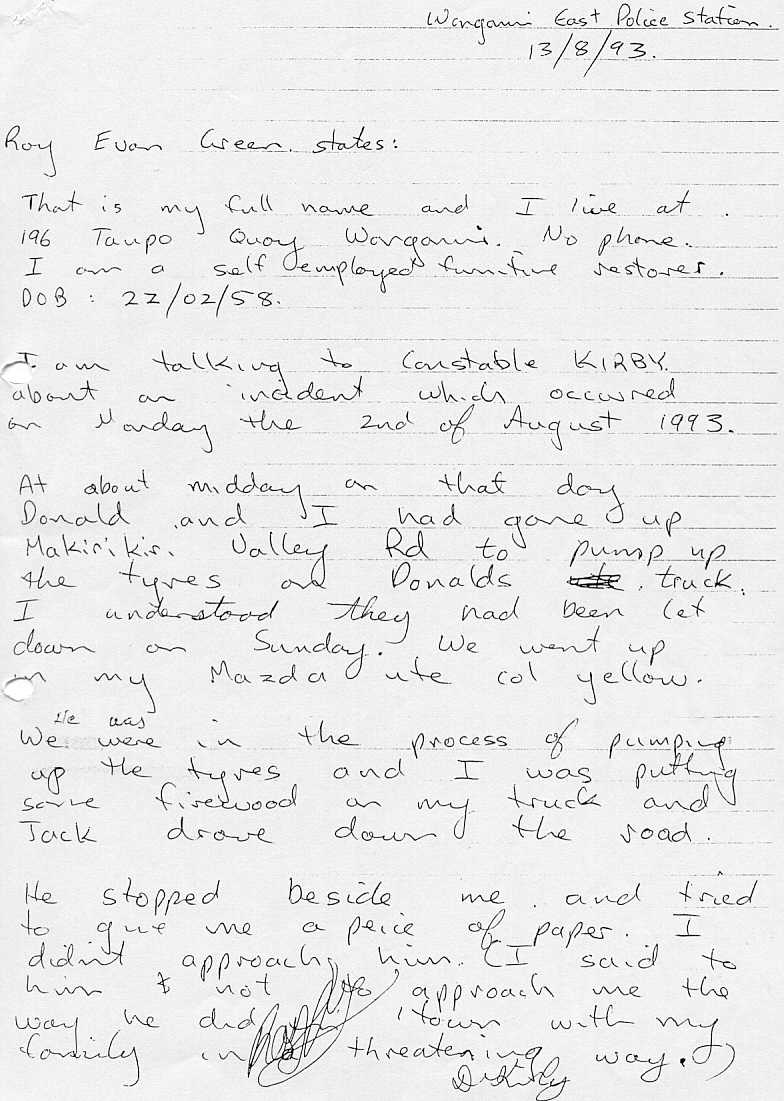 Wanganui East Police Station.
13/8/93.
Roy Evan Green. states:
That is my full name and I live at
196 Taupo Quay Wanganui. No phone.
I am a self employed furniture restorer.
DOB : 22/02/58.
I am talking to Constable KIRBY.
about an incident which occurred
on Monday the 2nd of August 1993.
At about midday on that day
Donald and I had gone up
Makirikiri Valley Rd to pump up
the tyres on Donalds truck.
I understood they had been let
down on Sunday. We went up
in my Mazda ute col yellow.
He was
We were in the process of pumping
up the tyres and I was putting
some firewood on my truck and
Jack drove down the road.
He stopped beside me and tried
to give me a peice of paper. I
didn't approach him. (I said to
him not to approach me the
way he did town with my
family in threatening way.)
D Kirby